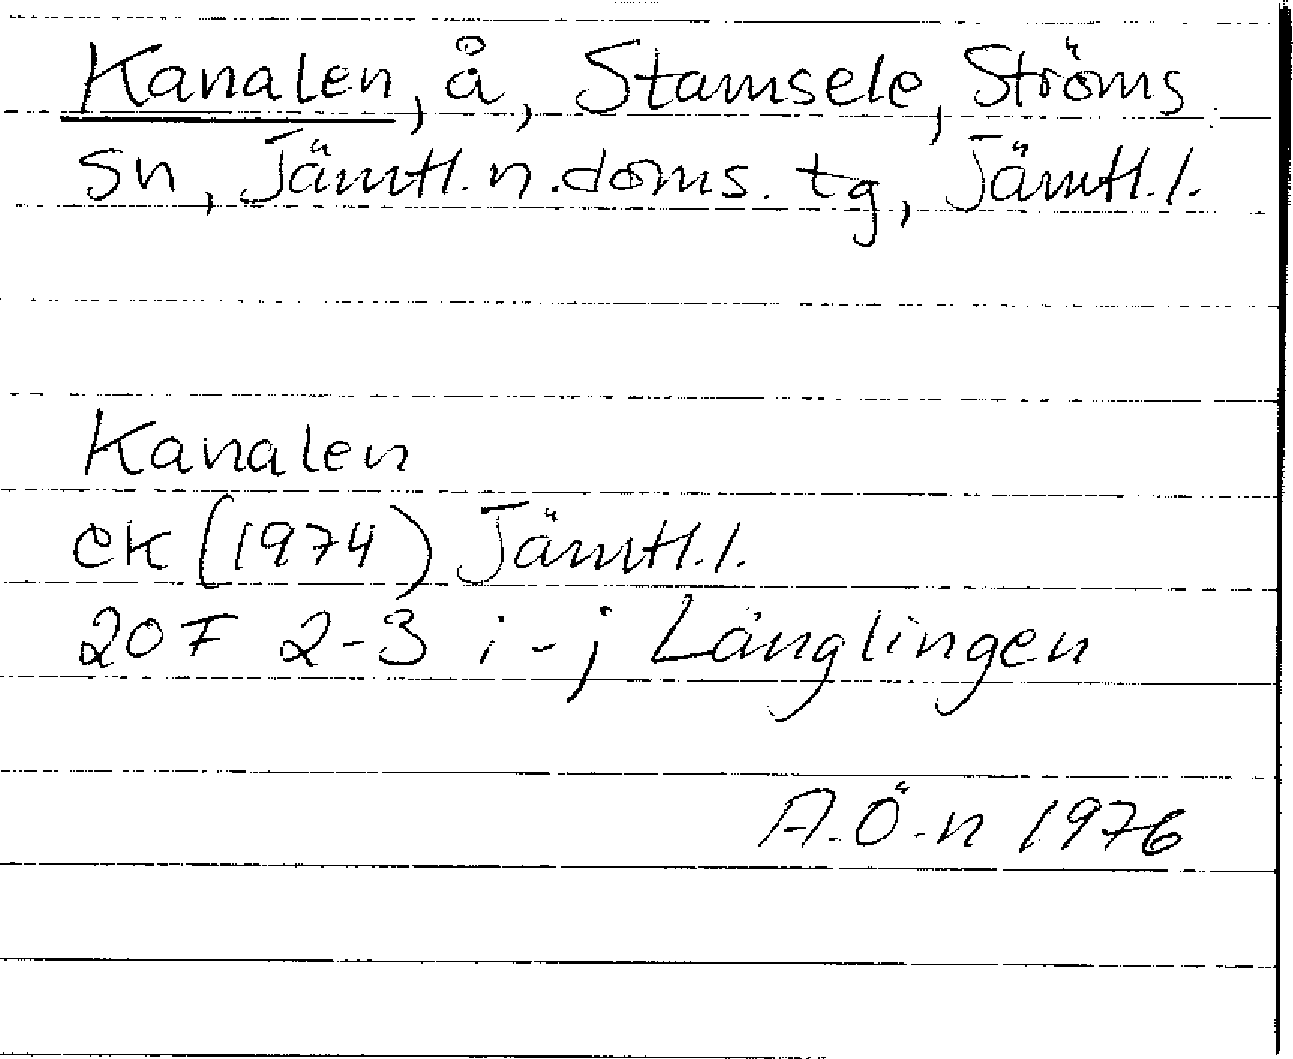 Kanalen, å, Stamsele, Ströms
sn, Jämtl. n. doms. tg, Jämtl. l.
Kanalen
ek (1974) Jämtl. l.
20F 2-3 i-j Länglingen
A.Ö-n 1976